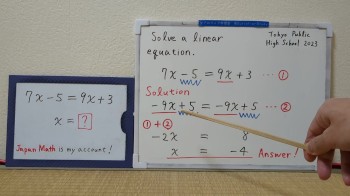 7x-5=9x+3
x = ?
Japan Math is my account!
Solve a linear
equation.
Tokyo Public
High School 2023
7x-5=9x+3 ... ①
Solution
-9x+5=-9x+5 ... ②
①+②
-2x = 8
x = -4 Answer!